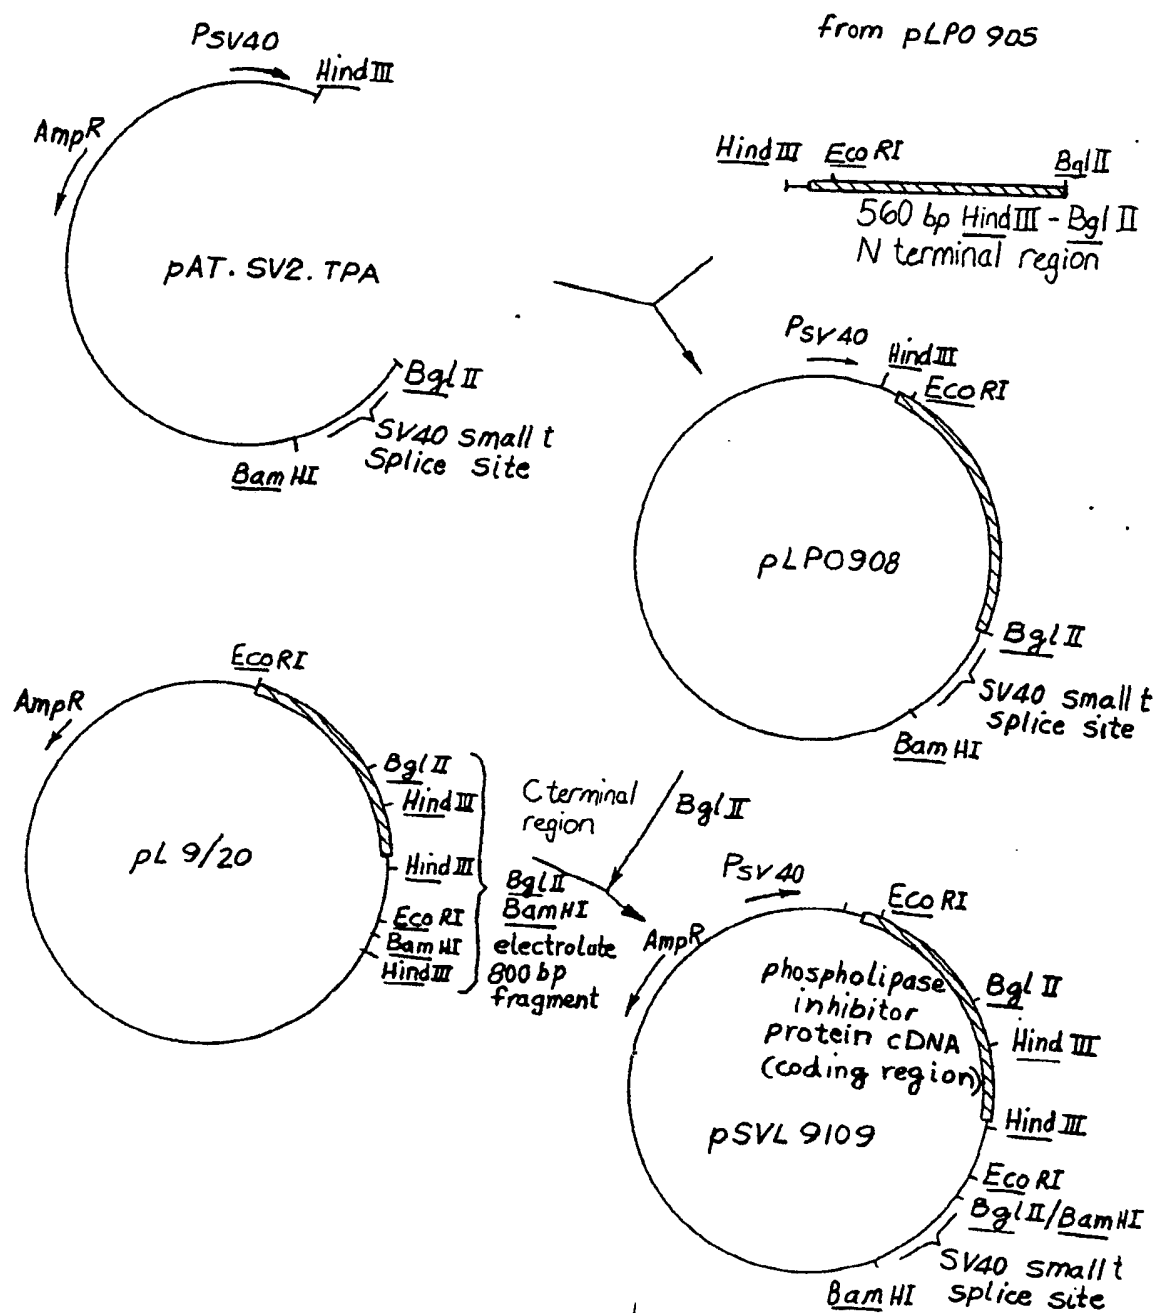 PSV40
Hind III
AmpR
pAT. SV2. TPA
Bgl II
SV40 small t
Splice site
Bam HI
from pLPO 905
Hind III
Eco RI
Bgl II
560 bp Hind III - Bgl II
N terminal region
PSV40
Hind III
Eco RI
pLPO908
Bgl II
SV40 small t
splice site
Bam HI
Eco RI
AmpR
Bgl II
Hind III
pL 9/20
Hind III
Eco RI
Bam HI
Hind III
C terminal
region
Bgl II
Bgl II
Bam HI
electrolate
800 bp
fragment
PSV40
Eco RI
AmpR
phospholipase
inhibitor
protein cDNA
(coding region)
Bgl II
Hind III
pSVL 9109
Hind III
Eco RI
Bgl II/Bam HI
SV40 small t
splice site
Bam HI